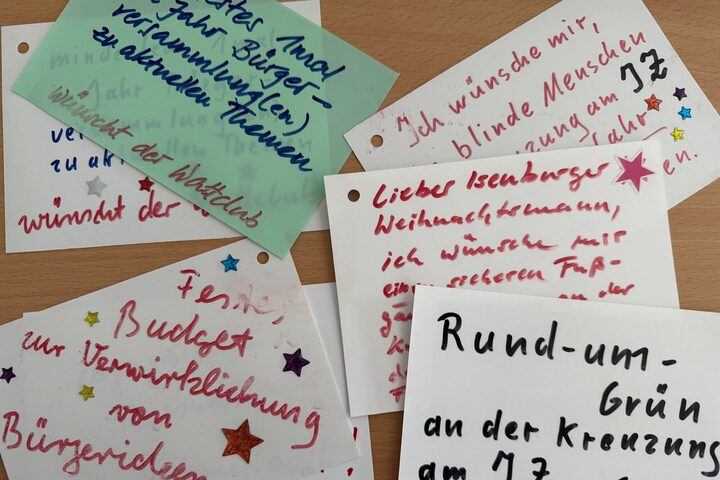 1mal
Jahr Bürger-
versammlung(en)
zu aktuellen Themen
wünscht der Wattclub
minde
Jahr
ver
zu ak
wünscht der W
Ich wünsche mir,
blinde Menschen
am JZ
Lieber Isenburger
Weihnachtsmann,
ich wünsche mir
einen sicheren Fuß-
an der
Festes
Budget
zur Verwirklichung
von
Bürgerideen
Rund-um-
Grün
an der Kreuzung
am JZ